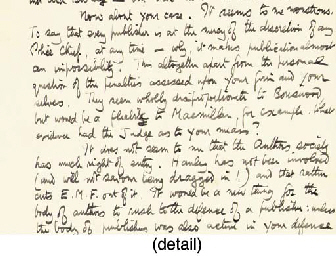 Now about your case. It seems to me monstrous.
To say that every publisher is at the mercy of the discretion of any
Police Chief, at any time — why, it makes publication almost
an impossibility! I am altogether apart from the personal
question of the penalties assessed upon your firm and your-
selves. They seem wholly disproportionate to
but would be a charity to Macmillan, for example. What
evidence had the Judge as to your means?
It does not seem to me that the Authors society
has much right of entry. has not been involved
(and will not favour being dragged in!) and that rather
cuts E.M.F. out of it. It would be a new thing for the
body of authors to rush to the defense of a publisher: unless
the body of publishers was also active in your defense
(detail)